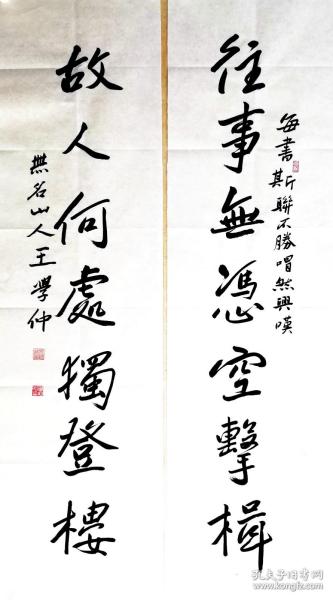 往事無憑空擊楫
每書斯聯不勝喟然興嘆
故人何處獨登樓
無名山人王學仲
孔夫子旧书网